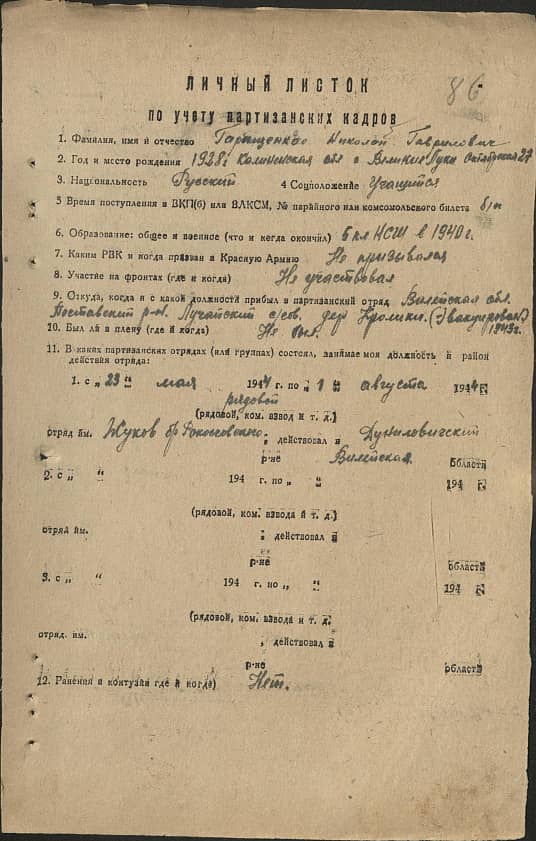 86
ЛИЧНЫЙ ЛИСТОК
по учету партизанских кадров
1. Фамилия, имя и отчество Николай Гаврилович
2. Год и место рождения 1928г Калининская обл г Великие Луки Октябрьская 27
3. Национальность Русский 4 Соцположение Учащийся
5 Время поступления в ВКП(б) или ВЛКСМ, № парийного или комсомольского билета б/п
6. Образование: общее и военное (что и когда окончил) 6 кл НСШ в 1940 г.
7. Каким РВК и когда призван в Красную Армию Не призывался
8. Участие на фронтах (где и когда) Не участвовал
9. Откуда, когда и с какой должности прибыл в партизанский отряд Вилейская обл.
Поставский р-н. Лучайский с/сов. дер Кролики. (Эвакуирован)
1943г.
10. Был ли в плену (где и когда) Не был.
11. В каких партизанских отрядах (или группах) состоял, занимаемая должность и район
действия отряда:
1. с „ 23 “ мая 1944 г. по „ 1 “ августа 1944 г.
рядовой
(рядовой, ком. взвод и т. д.)
отряд им. Жуков бр Рокоссовского; действовал в Дуниловичский
р-не Вилейская. области
2. с „ “ 194 г. по „ “ 194 г.
(рядовой, ком. взвода и т. д.)
отряд им. ; действовал в
р-не области
3. с „ “ 194 г. по „ “ 194 г.
(рядовой, ком. взвода и т. д.
отряд. им. , действовал в
р-не области
12. Ранения и контузии где и когда) Нет.